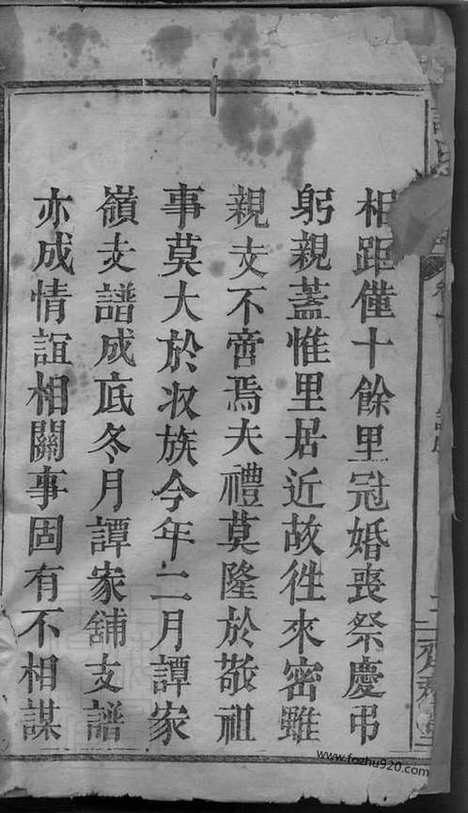 相距僅十餘里冠婚喪祭慶弔
躬親蓋惟里居近故徃來密雖
親支不啻焉夫禮莫隆於敬祖
事莫大於収族今年二月譚家
嶺支譜成底冬月譚家舖支譜
亦成情誼相關事固有不相謀
www.fozhu920.com